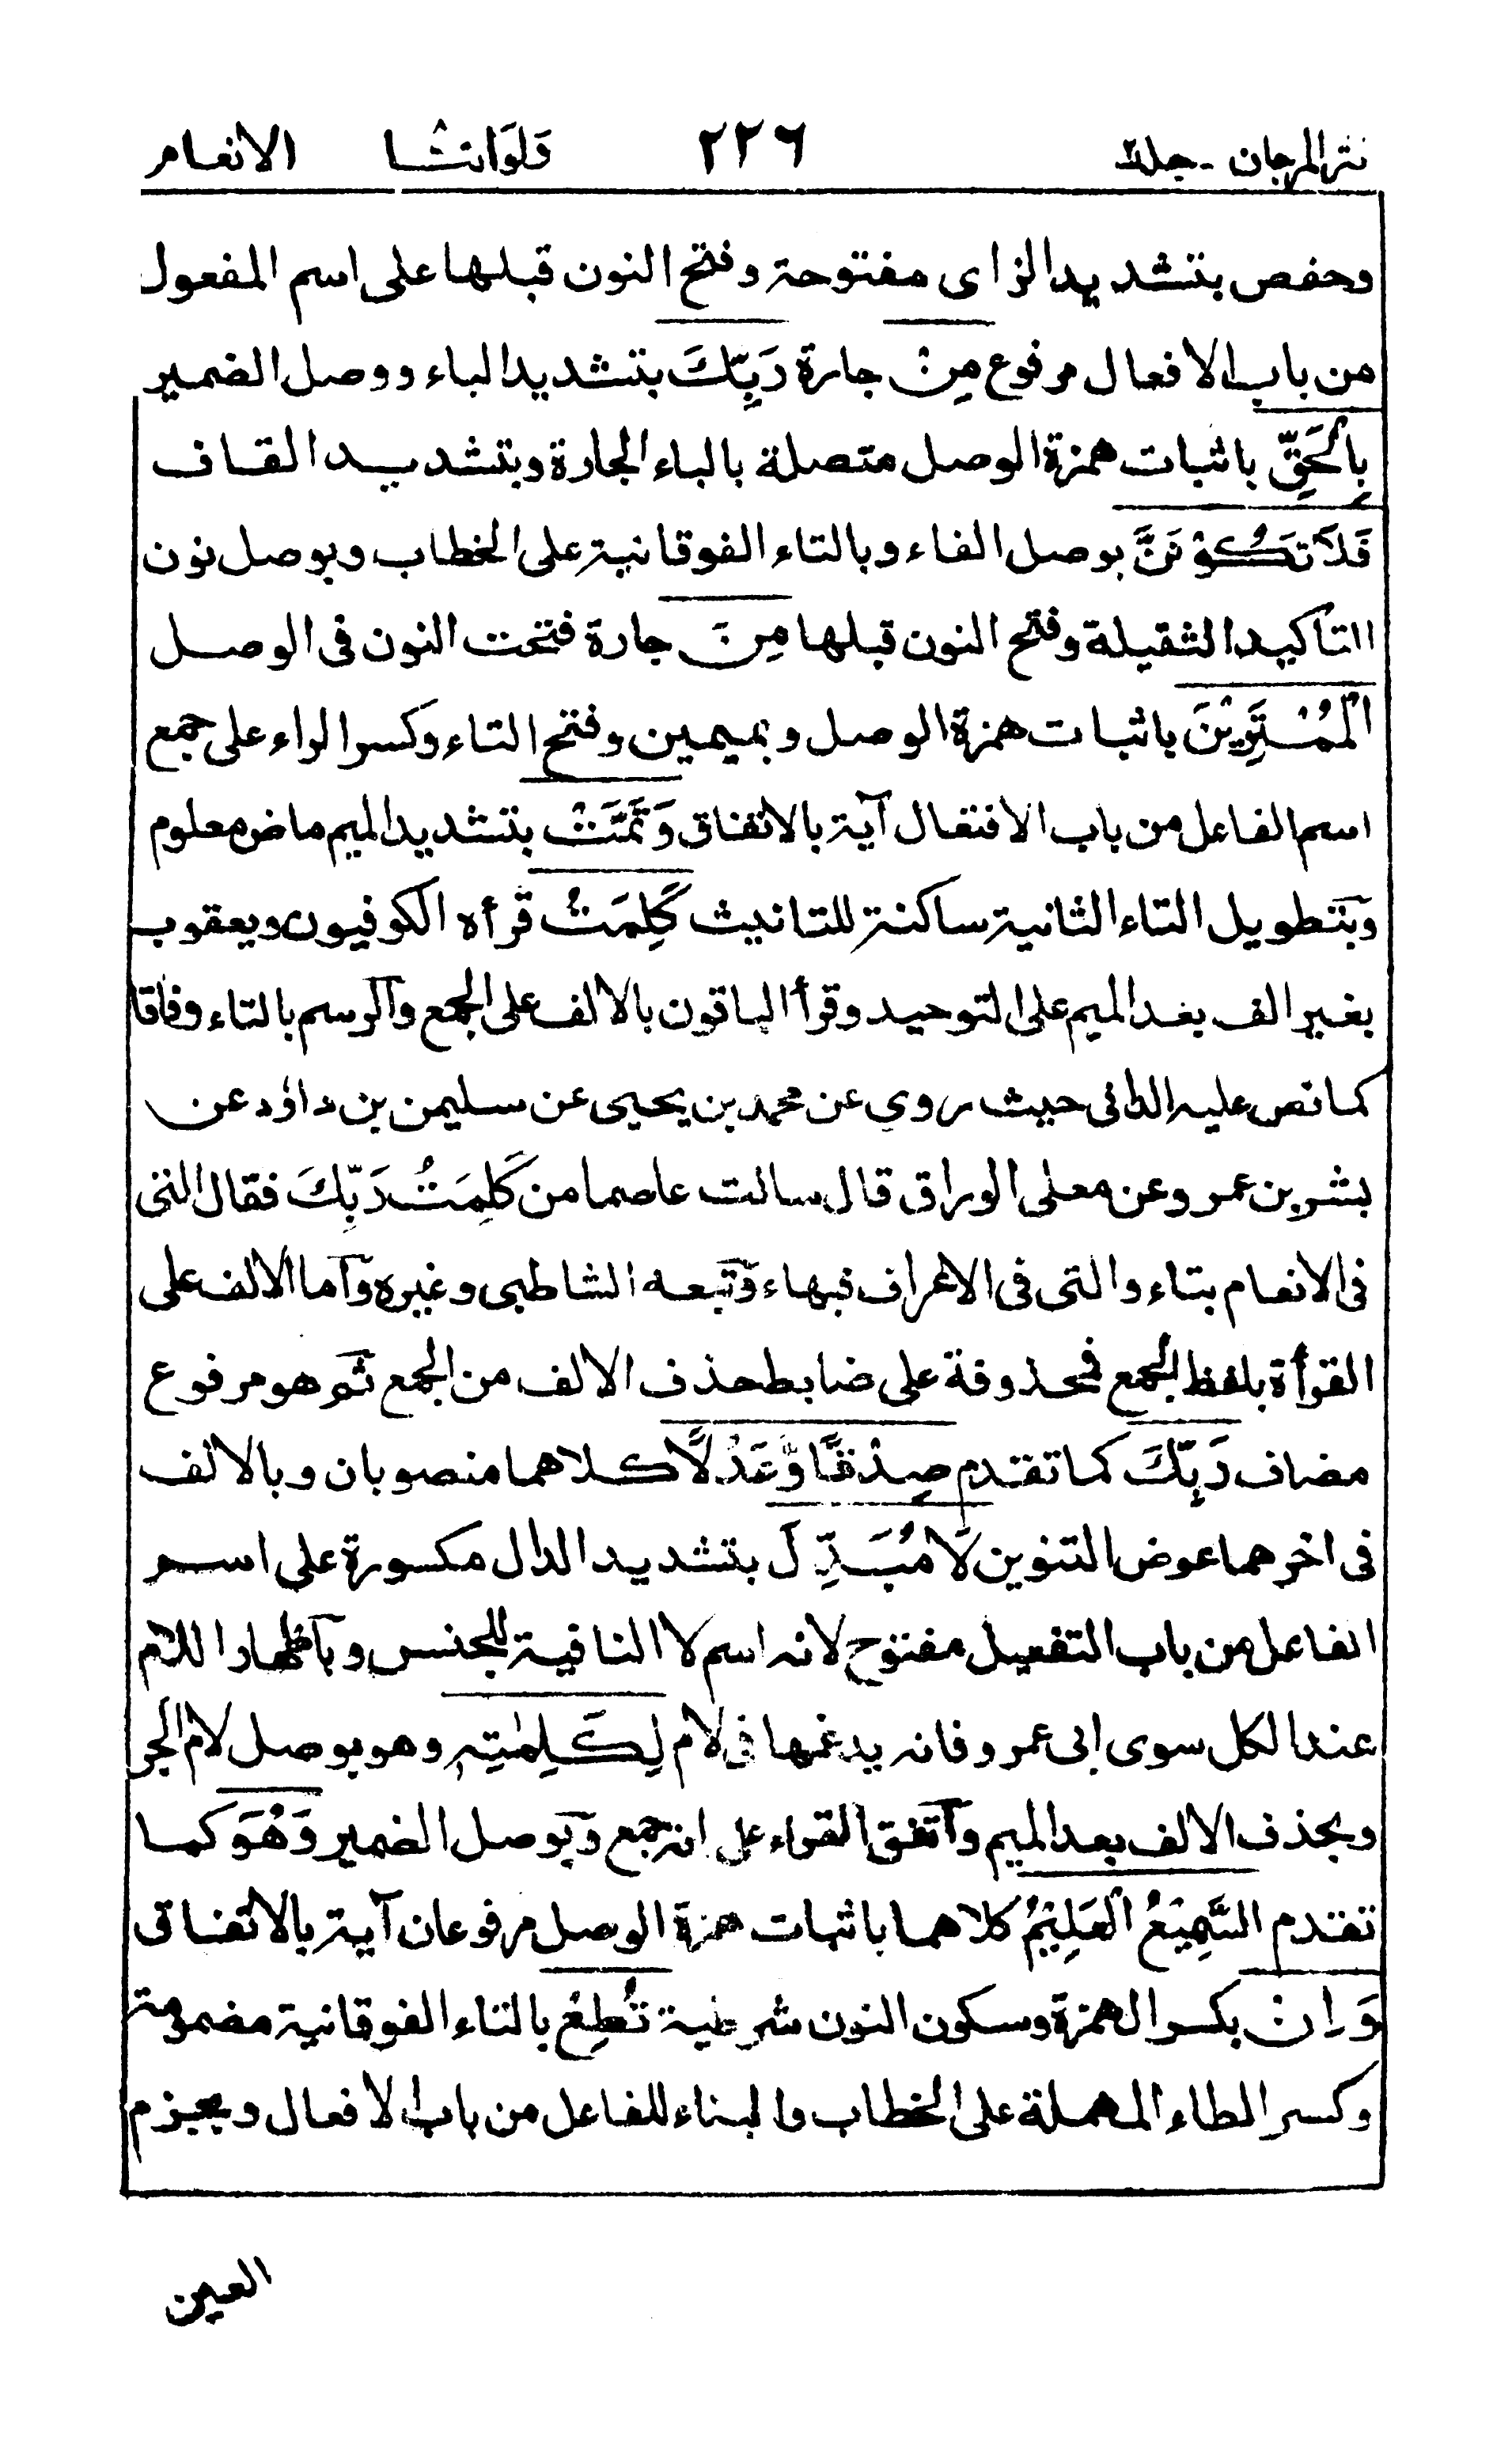 نثر المرجان - جلد٢ ٢٢٦ ولواننا الانعام
وحفص بتشديد الزاى مفتوحة وفتح النون قبلها على اسم المفعول
من باب الافعال مرفوع مِنْ جارة رَبِّكَ بتشديد الباء ووصل الضمير
بِالْحَقِّ باثبات همزة الوصل متصلة بالباء الجارة وبتشديد القاف
فَلَا تَكُوْنَنَّ بوصل الفاء وبالتاء الفوقانية على الخطاب وبوصل نون
التاكيد الثقيلة وفتح النون قبلها مِنَ جارة فتحت النون فى الوصل
الْمُمْتَرِيْنَ باثبات همزة الوصل وبميمين وفتح التاء وكسر الراء على جمع
اسم الفاعل من باب الافتعال آية بالاتفاق وَتَمَّتْ بتشديد الميم ماض معلوم
وبتطويل التاء الثانية ساكنة للتانيث كَلِمَتُ قرأه الكوفيون ويعقوب
بغير الف بعد الميم على التوحيد وقرأ الباقون بالالف على الجمع والرسم بالتاء وفاقا
كما نص عليه الدانى حيث روى عن محمد بن يحيى عن سليمن بن داؤد عن
بشر بن عمر وعن معلى الوراق قال سالت عاصما من كَلِمَتُ رَبِّكَ فقال التى
فى الانعام بتاء والتى فى الاعراف فبهاء وتبعه الشاطبى وغيره واما الالف على
القرأة بلفظ الجمع فمحذوفة على ضابط حذف الالف من الجمع ثم هو مرفوع
مضاف رَبِّكَ كما تقدم صِدْقًا وَّعَدْلًا كلاهما منصوبان وبالالف
فى اخرهما عوض التنوين لَا مُبَدِّلَ بتشديد الدال مكسورة على اسم
الفاعل من باب التفعيل مفتوح لانه اسم لا النافية للجنس وباظهار اللام
عند الكل سوى ابى عمرو فانه يدغمها فى لام لِكَلِمٰتِهٖ وهو بوصل لام الجر
وبحذف الالف بعد الميم واتفق القراء على انه جمع وبوصل الضمير وَهُوَ كما
تقدم السَّمِيْعُ الْعَلِيْمُ كلاهما باثبات همزة الوصل مرفوعان آية بالاتفاق
وَاِنْ بكسر الهمزة وسكون النون شرطية تُطِعْ بالتاء الفوقانية مضمومة
وكسر الطاء المهملة على الخطاب والبناء للفاعل من باب الافعال وبجزم
العين